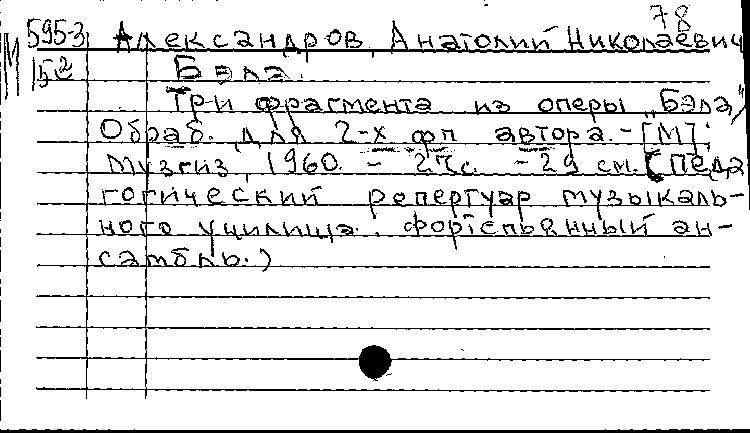 78
М 595-3 Александров, Анатолий Николаевич
15-2 Бэла.
Три фрагмента из оперы "Бэла"
Обраб. для 2-х фп автора. - [М];
Музгиз, 1960. - 27с. - 29 см. (Педа
гогический репертуар музыкаль-
ного училища. Фортепьянный ан-
самбль.)